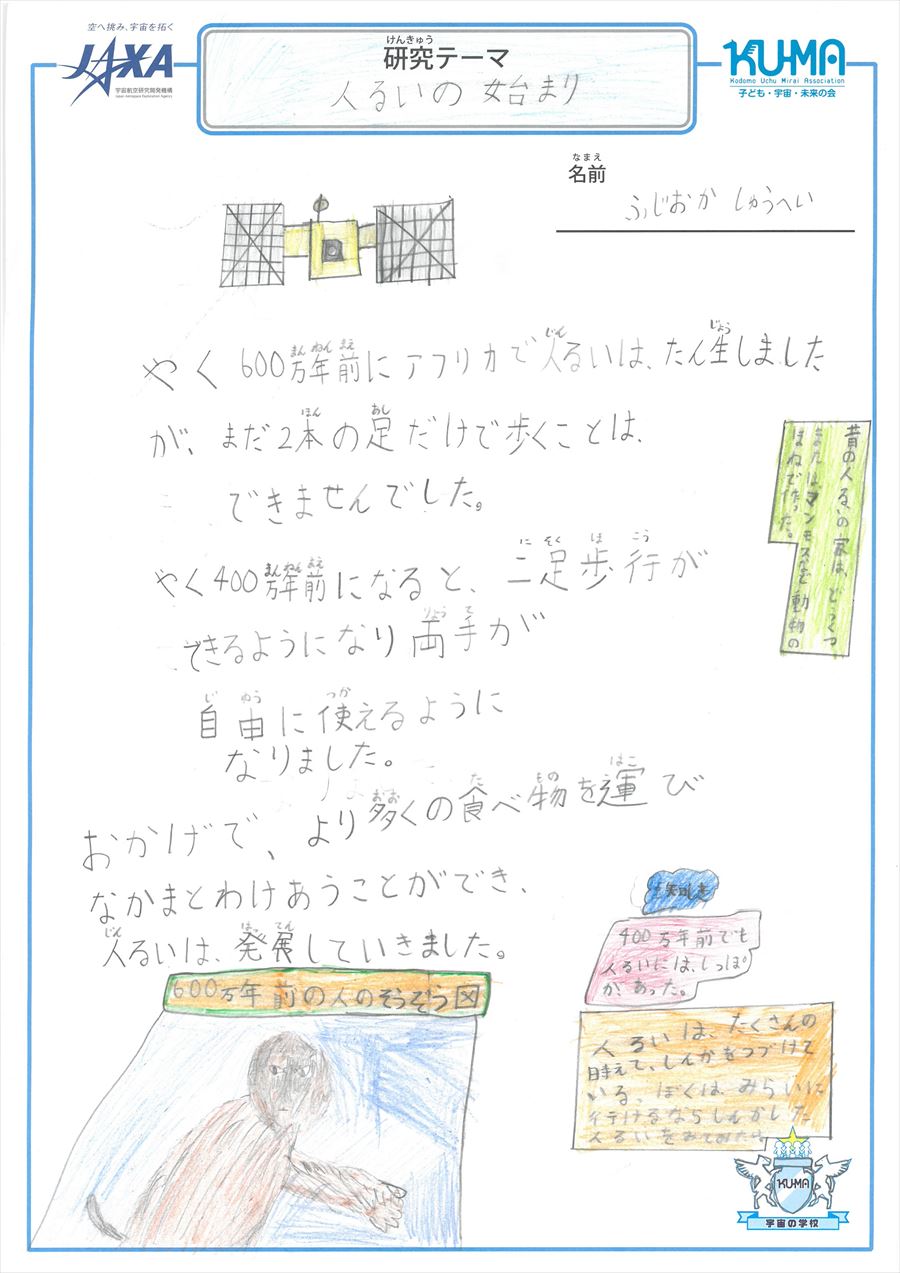 空へ挑み、宇宙を拓く
JAXA
宇宙航空研究開発機構
Japan Aerospace Exploration Agency
けんきゅう
研究テーマ
人るいの 始まり
KUMA
Kodomo Uchu Mirai Association
子ども・宇宙・未来の会
なまえ
名前
ふじおか しゅうへい
まん ねん まえ じん じょう
やく 600万年前にアフリカで人るいは、たん生しました
ほん あし
が、まだ2本の足だけで歩くことは、
できませんでした。
まん ねん まえ に そく ほ こう
やく400万年前になると、二足歩行が
りょう て
できるようになり両手が
じ ゆう つか
自由に使えるように
なりました。
おお た もの はこ
おかげで、より多くの食べ物を運び
なかまとわけあうことができ、
じん はっ てん
人るいは、発展していきました。
昔の人るいの家は、どうくつ
またはマンモスなど動物の
ほねで作った。
知しき
400万年前でも
人るいには、しっぽ
が、あった。
600万年前の人のそうぞう図
人るいは、たくさんの
時えて、しんかをつづけて
いる、ぼくは、みらいに
行けるならしんかした
人るいをみてみたい
KUMA
宇宙の学校